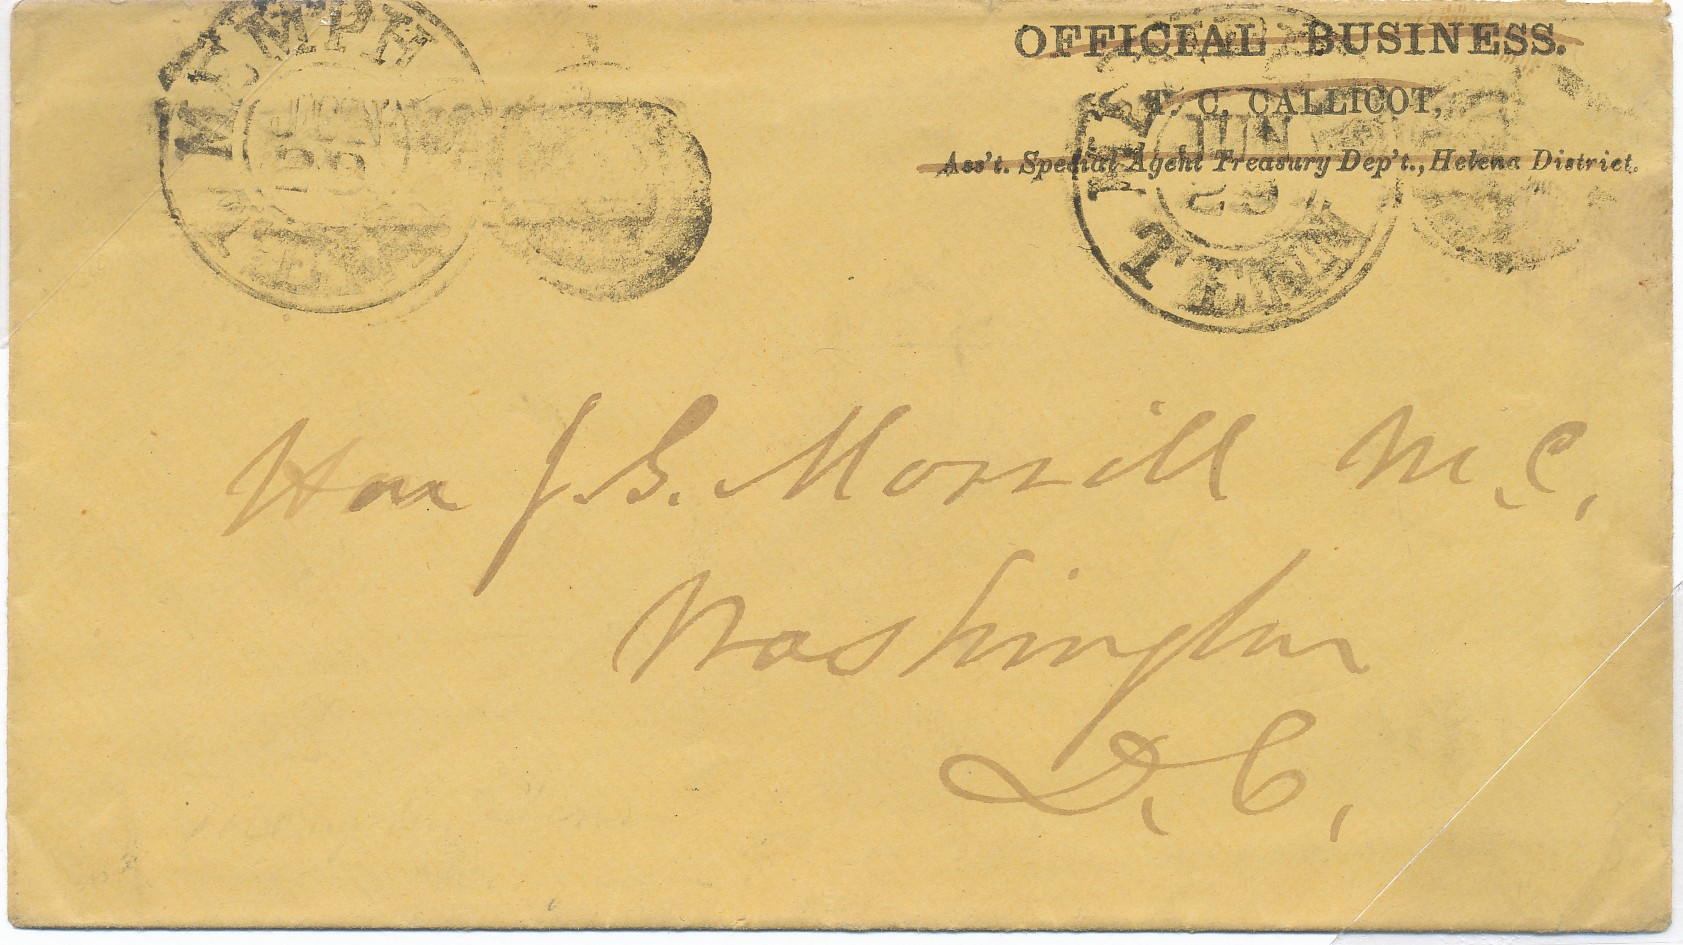 OFFICIAL BUSINESS.
T. C. CALLICOT,
Ass't. Special Agent Treasury Dep't., Helena District.
MEMPH
TENN
JUN
ME
TENN
JUN
Hon J. S. Morrill M.C.
Washington
D.C.